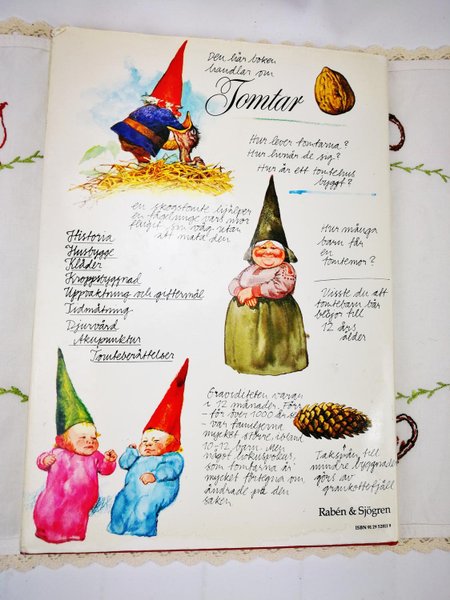 Den här boken
handlar om
Tomtar
Hur lever tomtarna?
Hur livnär de sig?
Hur är ett tomtehus
byggt?
en skogstomte hjälper
en fågelunge vars mor
flugit sin väg utan
att mata den
Historia
Husbygge
Kläder
Kroppsbyggnad
Uppvaktning och giftermål
Tidmätning
Djurvård
Akupunktur
Tomteberättelser
Hur många
barn får
en
tomtemor?
Visste du att
tomtebarn bär
blöjor till
12 års
ålder
Graviditeten varar
i 12 månader. Förr
- för över 1000 år sen
- var familjerna
mycket större, ibland
10-12 barn. Men
något hokuspokus,
som tomtarna är
mycket förtegna om
ändrade på den
saken
Takspån till
mindre byggnader
görs av
grankottefjäll
Rabén & Sjögren
ISBN 91 29 52811 9